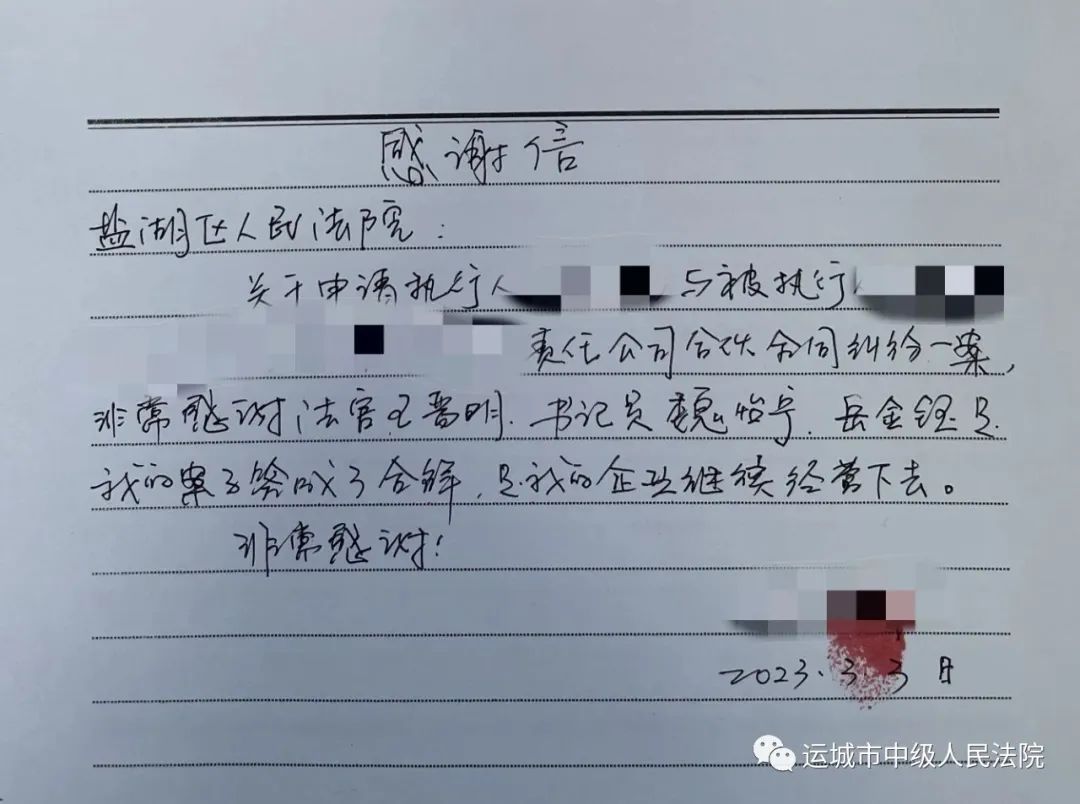 感谢信
盐湖区人民法院：
关于申请执行人 与被执行人
责任公司合伙合同纠纷一案，
非常感谢法官王晋明、书记员魏怡宁、岳金
我的案子 成了合解，让我的企业继续经营下去。
非常感谢！
2023.3.3日
运城市中级人民法院